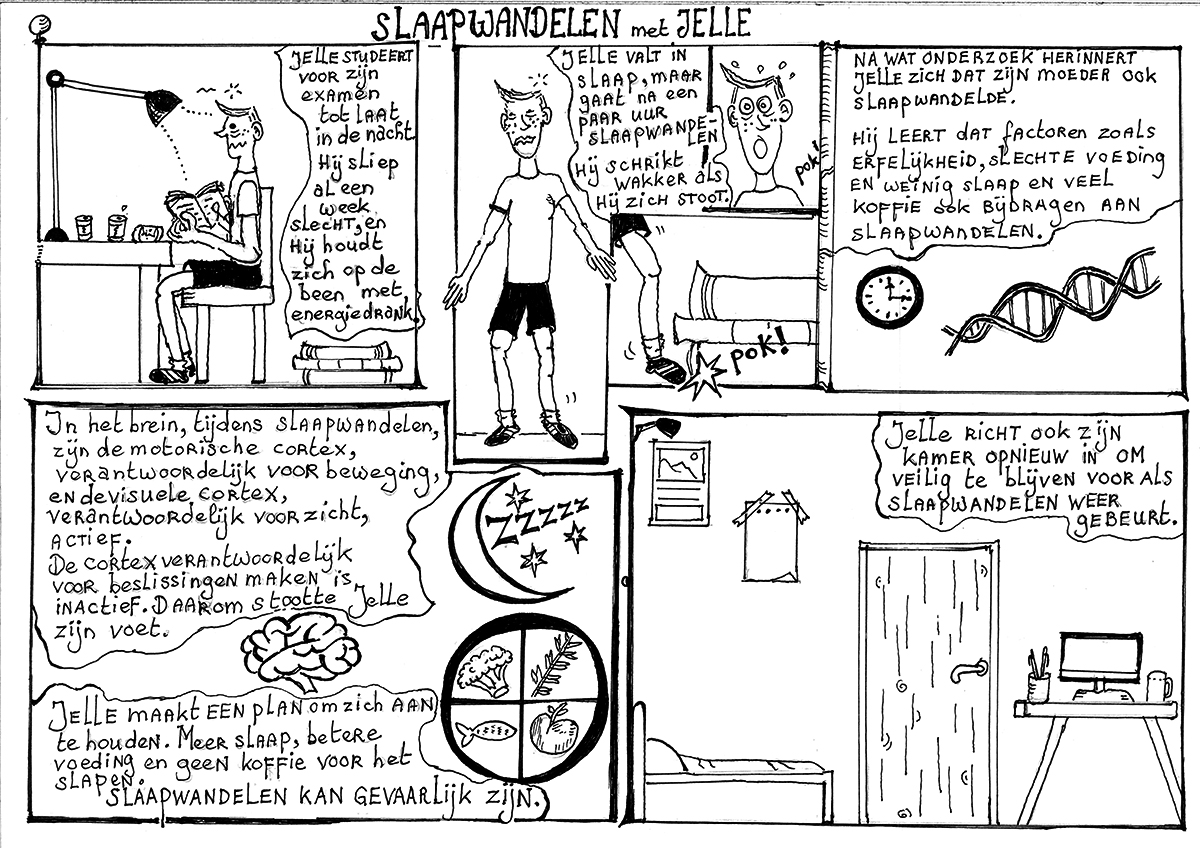 SLAAPWANDELEN met JELLE
JELLE STUDEERT
VOOR zijn
examen
tot LAAT
in de nacht.
Hij sliep
al een
week
slecht, en
Hij houdt
zich op de
been met
energiedrank.
JELLE VALT IN
SLAAP, MAAR
GAAT NA EEN
PAAR UUR
SLAAPWANDE-
LEN!
Hij SCHRIKT
WAKKER ALS
Hij ZICH STOOT.
pok!
pok!
NA WAT ONDERZOEK HERINNERT
JELLE ZICH DAT ZIJN MOEDER OOK
SLAAPWANDELDE.
Hij LEERT dat factoren zoals
ERFELIJKHEID, SLECHTE VOEDING
EN WEINIG SLAAP EN VEEL
KOFFIE OOK BIJDRAGEN AAN
SLAAPWANDELEN.
In het brein, tijdens SLAAPWANDELEN,
zijn de MOTORISCHE CORTEX,
VERANTWOORDELIJK VOOR BEWEGING,
en de visuele CORTEX,
VERANTWOORDELIJK VOOR ZICHT,
ACTIEF.
De CORTEX VERANTWOORDELIJK
VOOR beslissingen maken is
INACTIEF. DAAROM STOOTTE Jelle
zijn voet.
ZZZZZ
JELLE MAAKT EEN PLAN om zich AAN
te houden. Meer SLAAP, betere
voeding en geen koffie voor het
slapen.
SLAAPWANDELEN KAN GEVAARLIJK ZIJN.
Jelle RICHT OOK ZIJN
KAMER OPNIEUW IN OM
VEILIG te blijven VOOR ALS
SLAAPWANDELEN WEER
GEBEURT.